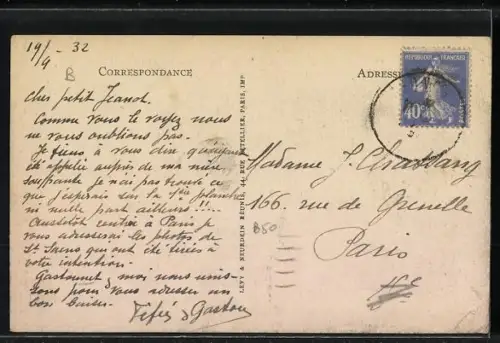 19/9 - 32
B
CORRESPONDANCE
ADRESSE
RÉPUBLIQUE FRANÇAISE
40
Cher petit Jeannot.
Comme vous le voyez nous
ne vous oublions pas.
Je tiens à vous dire
été appelée auprès de ma mère
souffrante je n'ai pas trouvé ce
que j'espérais sur la planche
ni nulle part ailleurs !!!..
Aussitôt rentrée à Paris je
vous adresserai les photos de
St Saens qui ont été tirées à
votre intention.
Gastounet & moi nous
pour vous adresser un
bon baiser.
Fifie & Gaston
LEVY & NEURDEIN RÉUNIS, 44, RUE LETELLIER, PARIS, IMP.
Madame J. Chassang
166. rue de Grenelle
Paris
B50